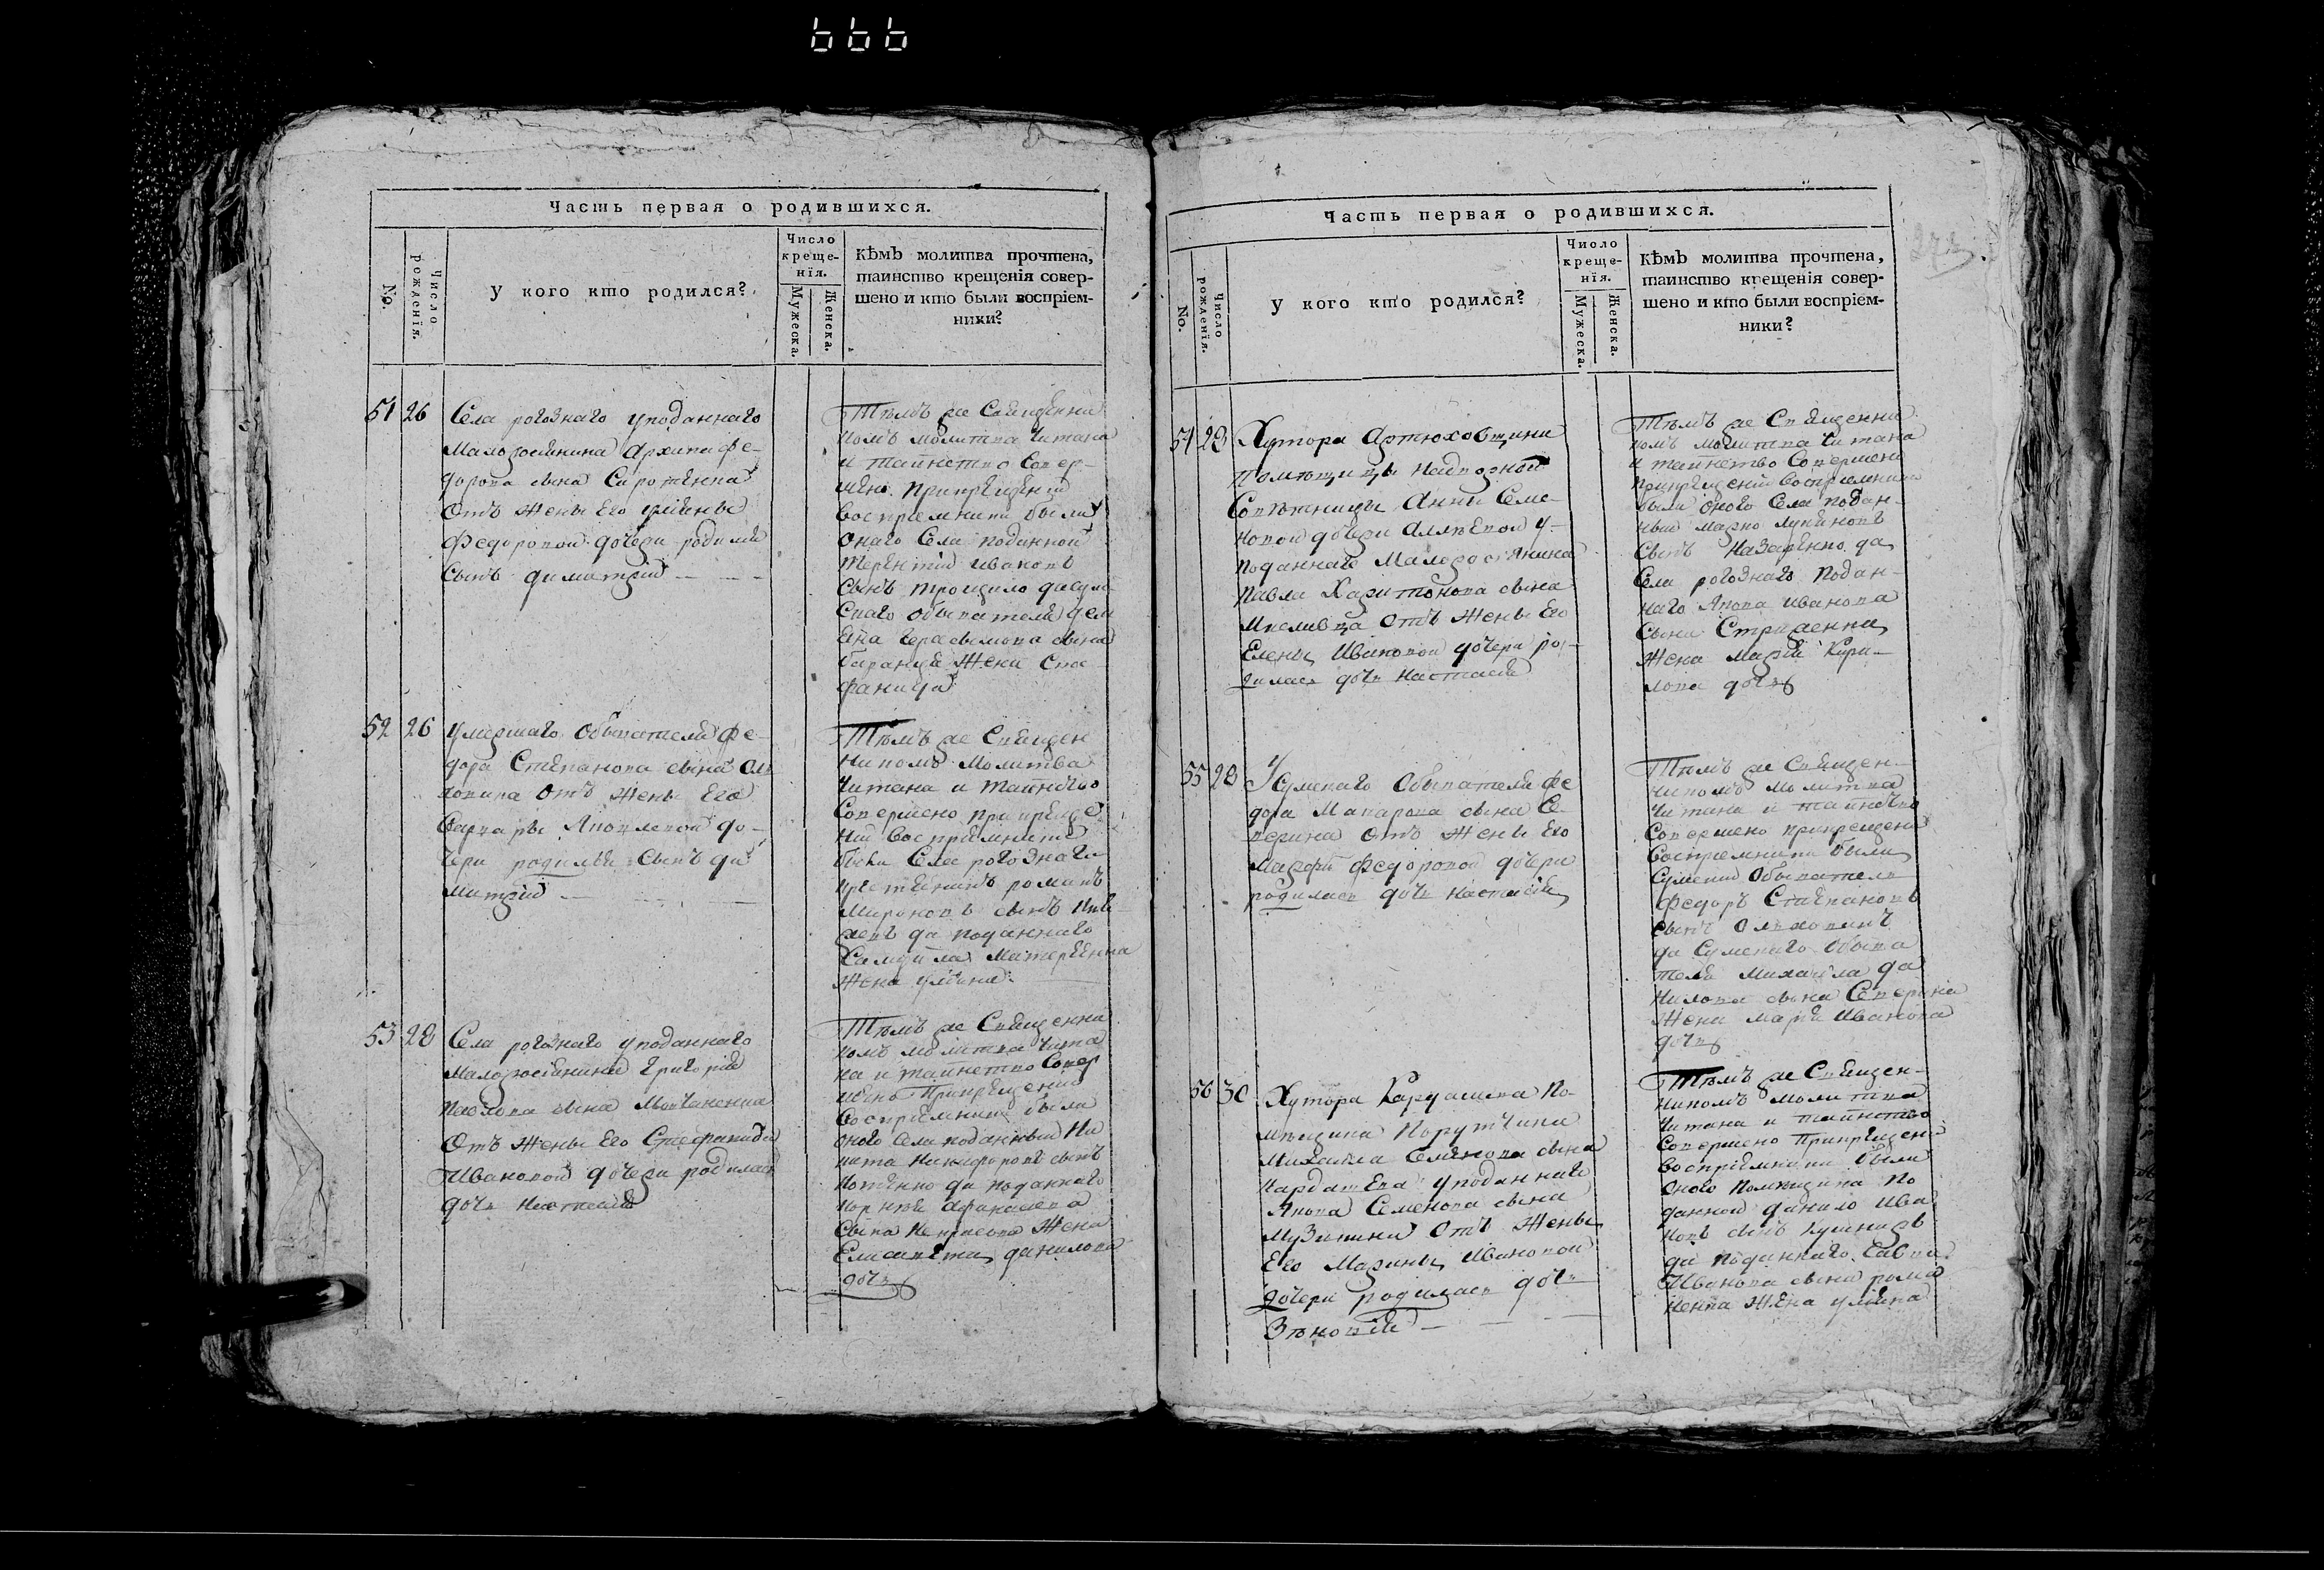 666
Часть первая о родившихся.
No.
Число рожденїя.
У кого кто родился?
Число крещенїя.
Мужеска.
Женска.
Кѣмъ молитва прочтена,
таинство крещенїя совер-
шено и кто были воспрїем-
ники?
51 26
Села рогознаго уподаннаго
Малоросіянина Архипа Фе-
дорова сына Сиротенка
Отъ жены Его Ульяны
Федоровой дочери родился
Сынъ Димитрій
Тѣмъ же Священни
комъ молитва читана
и таинство совер-
шено При крещеніи
Воспріемники были
Онаго Села поданной
Терентій Ивановъ
Сынъ
скаго обывателя
Герасимова сына
жена Сте
фанида
52 26
Умершаго Обывателя Фе-
дора Степанова сына Оль
ховика Отъ жены Его
Варвары Яковлевой до-
чери родился Сынъ Ди
митрій
Тѣмъ же Священ
никомъ Молитва
Читана и Таинство
Совершено при креще
ніи Воспріемники
были Села рогознаго
Романъ
Мироновъ сынъ
да поданнаго
Самуйла
жена Ульяна
53 28
Села рогознаго уподаннаго
Малоросіянина Григорія
Павлова сына
Отъ жены Его Стефаниды
Ивановой дочери родилась
дочь Настасія
Тѣмъ же Священни
комъ молитва чита
на и таинство Совер
шено При крещеніи
Воспріемники были
оного Села поданный Ни
кита Никифоровъ сынъ
да поданнаго
Корнія Афанасіева
Сына жена
Елисавета Данилова
дочь
Часть первая о родившихся.
No.
Число рожденїя.
У кого кто родился?
Число крещенїя.
Мужеска.
Женска.
Кѣмъ молитва прочтена,
таинство крещенїя совер-
шено и кто были воспрїем-
ники?
54 28
Хутора Артюховщини
Помѣщицы Надворной
Совѣтницы Анны Семе-
новой дочери у-
поданнаго Малоросіянина
Павла Харитонова сына
Отъ жены Его
Елены Ивановой дочери ро-
дилась дочь Настасія
Тѣмъ же Священни
комъ молитва читана
и таинство Совершено
При крещеніи воспріемники
были оного Села подан-
ный Марко
Сынъ Назаренко да
Села рогознаго Подан-
наго Якова Иванова
Сына
жена Марія Кири-
лова дочь
55 28
У Сумскаго Обывателя Фе
дора Макарова сына Се
верина отъ жены Его
Марфы Федоровой дочери
родилась дочь Настасія
Тѣмъ же Священ-
никомъ молитва
Читана и таинство
Совершено при крещеніи
Воспріемники были
Сумский Обыватель
Федоръ Степановъ
сынъ Ольховикъ
да Сумскаго Обыва
теля Михайла Да
нилова сына Северина
жена Марія Иванова
дочь
56 30
Хутора Кардашева По-
мѣщика Порутчика
Михайла Семенова сына
Кардашева уподаннаго
Якова Семенова сына
Отъ жены
Его Марины Ивановой
дочери родилась дочь
Зѣновія
Тѣмъ же Священ-
никомъ молитва
Читана и таинство
Совершено При крещеніи
Воспріемники были
Оного Помѣщика по
данной Данило Ива
новъ сынъ
да Поданнаго Савы
Иванова сына Рома
ненка жена Ульяна